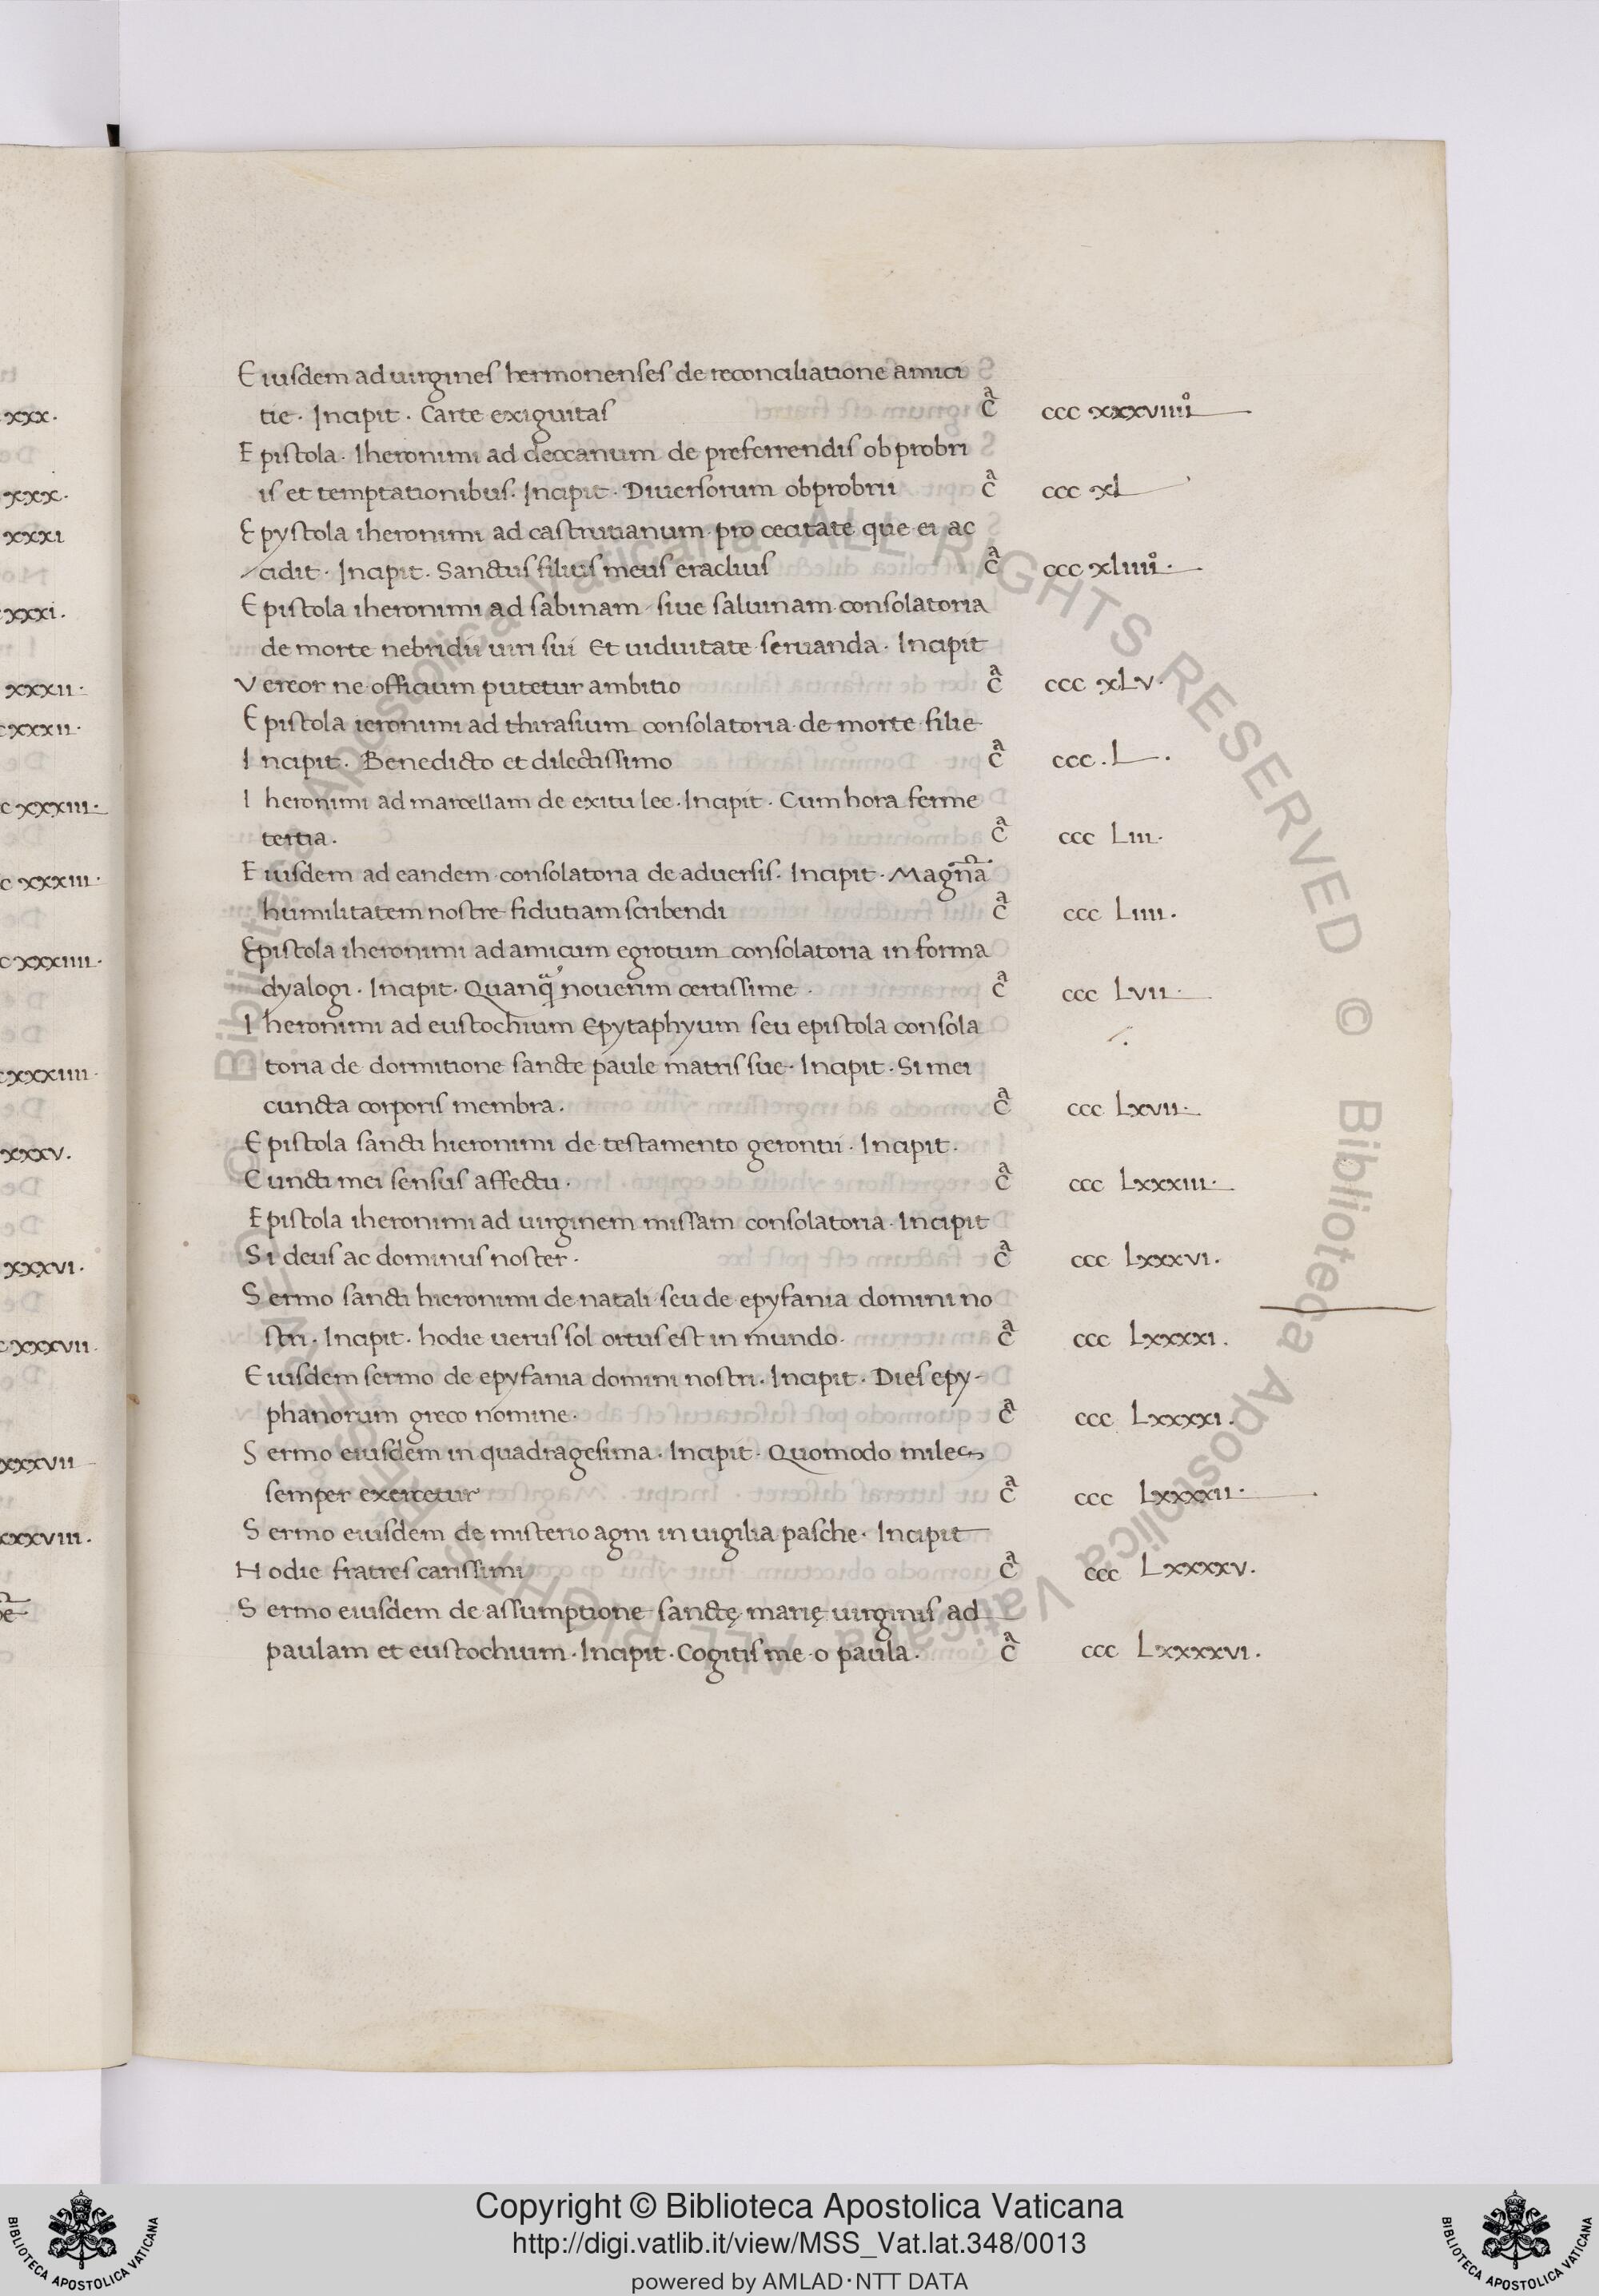 xxx.
xxx.
xxxi
xxxi.
xxxii.
cxxxii.
c xxxiii.
c xxxiii.
cxxxiiii.
cxxxiiii.
xxxv.
xxxvi.
cxxxvii.
xxxvii
xxxviii.
Eiusdem ad uirgines hermonenses de reconciliatione amici
tie. Incipit. Carte exiguitas c̃ᵃ ccc xxxviiiiº
Epistola. Iheronimi ad deccanum de preferrendis obprobri
is et temptationibus. Incipit. Diuersorum obprobrii c̃ᵃ ccc xL
Epystola iheronimi ad castrutianum pro cecitate que ei ac
cidit. Incipit. Sanctus filius meus eraclius c̃ᵃ ccc xliiiiº.
Epistola iheronimi ad sabinam siue saluinam consolatoria
de morte nebridii uiri sui Et uiduitate seruanda. Incipit
Vereor ne officium putetur ambitio c̃ᵃ ccc xLv.
Epistola ieronimi ad thirasium consolatoria de morte filie
Incipit. Benedicto et dilectissimo c̃ᵃ ccc. L.
Iheronimi ad marcellam de exitu lee. Incipit. Cum hora ferme
tertia. c̃ᵃ ccc Liii.
Eiusdem ad eandem consolatoria de aduersis. Incipit. Magnã
humilitatem nostre fidutiam scribendi c̃ᵃ ccc Liiii.
Epistola iheronimi ad amicum egrotum consolatoria in forma
dyalogi. Incipit. Quanq̃ nouerim certissime. c̃ᵃ ccc Lvii.
Iheronimi ad eustochium Epytaphyum seu epistola consola
toria de dormitione sancte paule matris sue. Incipit. Si mei
cuncta corporis membra. c̃ᵃ ccc Lxvii.
Epistola sancti hieronimi de testamento gerontii. Incipit.
Cuncti mei sensus affectu. c̃ᵃ ccc Lxxxiii.
Epistola iheronimi ad uirginem missam consolatoria. Incipit
Si deus ac dominus noster. c̃ᵃ ccc Lxxxvi.
Sermo sancti hieronimi de natali seu de epyfania domini no
stri. Incipit. hodie uerus sol ortus est in mundo. c̃ᵃ ccc Lxxxxi.
Eiusdem sermo de epyfania domini nostri. Incipit. Dies epy-
phanorum greco nomine. c̃ᵃ ccc Lxxxxi.
Sermo eiusdem in quadragesima. Incipit. Quomodo miles
semper exercetur c̃ᵃ ccc Lxxxxii.
Sermo eiusdem de misterio agni in uigilia pasche. Incipit
Hodie fratres carissimi c̃ᵃ ccc Lxxxxv.
Sermo eiusdem de assumptione sanctę marię uirginis ad
paulam et eustochium. Incipit. Cogitis me o paula. c̃ᵃ ccc Lxxxxvi.
© Biblioteca Apostolica Vaticana ALL RIGHTS RESERVED © Biblioteca Apostolica Vaticana ALL RIGHTS
Copyright © Biblioteca Apostolica Vaticana
http://digi.vatlib.it/view/MSS_Vat.lat.348/0013
powered by AMLAD·NTT DATA
BIBLIOTECA APOSTOLICA VATICANA
BIBLIOTECA APOSTOLICA VATICANA